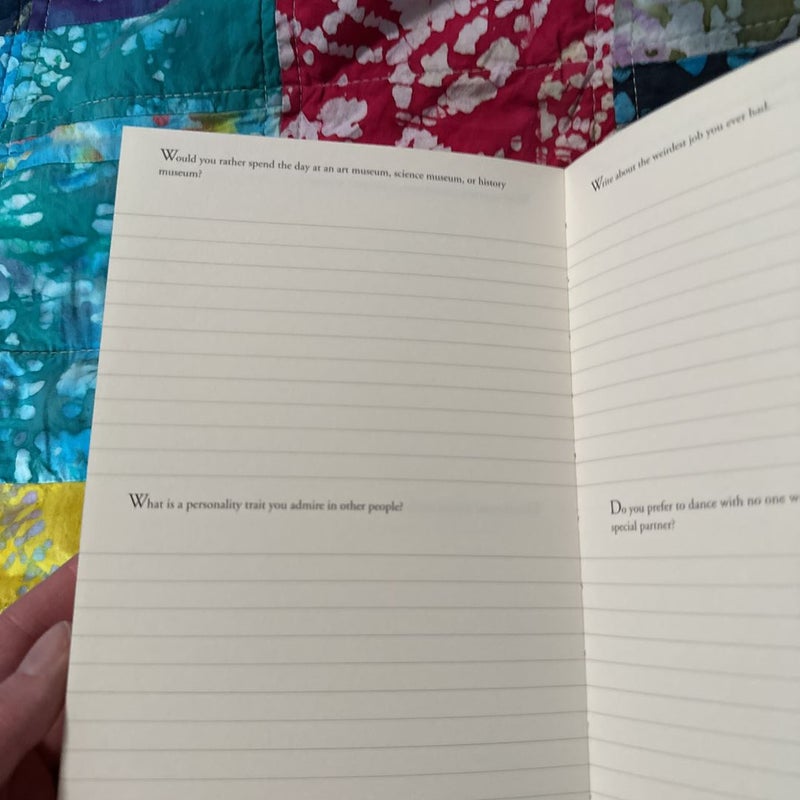 Would you rather spend the day at an art museum, science museum, or history
museum?
What is a personality trait you admire in other people?
Write about the weirdest job you ever had.
Do you prefer to dance with no one w
special partner?